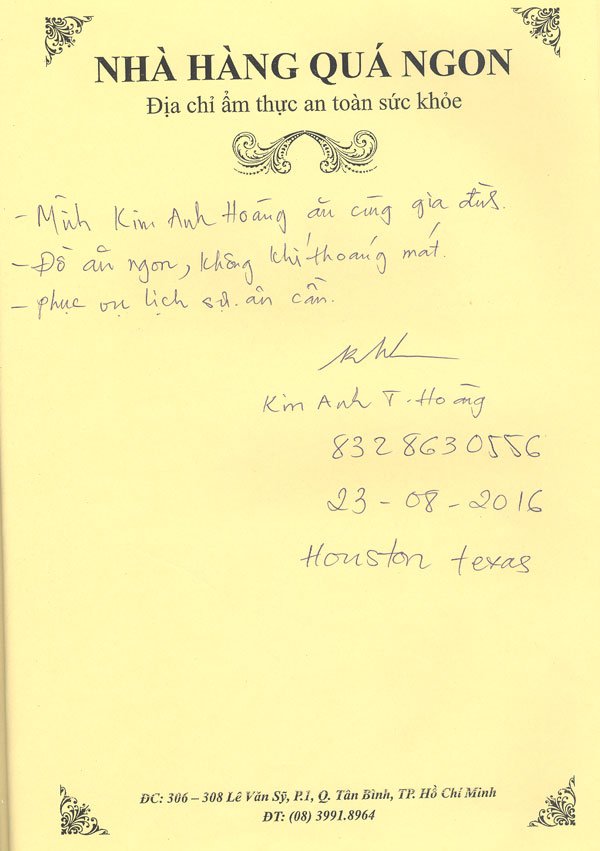 NHÀ HÀNG QUÁ NGON
Địa chỉ ẩm thực an toàn sức khỏe
- Mình Kim Anh Hoàng ăn cùng gia đình.
- Đồ ăn ngon, không khí thoáng mát.
- phục vụ lịch sự. ân cần.
Kim Anh T. Hoàng
8328630556
23-08-2016
Houston texas
ĐC: 306 – 308 Lê Văn Sỹ, P.1, Q. Tân Bình, TP. Hồ Chí Minh
ĐT: (08) 3991.8964